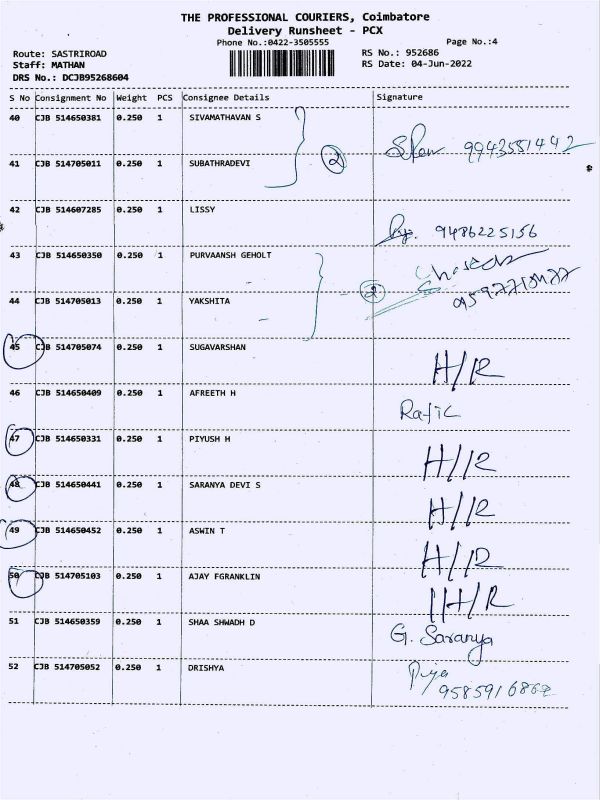 THE PROFESSIONAL COURIERS, Coimbatore
Delivery Runsheet - PCX
Phone No.:0422-3505555
Page No.:4
Route: SASTRIROAD
RS No.: 952686
Staff: MATHAN
RS Date: 04-Jun-2022
DRS No.: DCJB95268604
S No Consignment No Weight PCS Consignee Details Signature
40 CJB 514650381 0.250 1 SIVAMATHAVAN S
2 9943551442
41 CJB 514705011 0.250 1 SUBATHRADEVI
42 CJB 514607285 0.250 1 LISSY
9486225156
43 CJB 514650350 0.250 1 PURVAANSH GEHOLT
2
44 CJB 514705013 0.250 1 YAKSHITA
45 CJB 514705074 0.250 1 SUGAVARSHAN
H/R
46 CJB 514650409 0.250 1 AFREETH H
Rafic
47 CJB 514650331 0.250 1 PIYUSH H
H/R
48 CJB 514650441 0.250 1 SARANYA DEVI S
H/R
49 CJB 514650452 0.250 1 ASWIN T
H/R
50 CJB 514705103 0.250 1 AJAY FGRANKLIN
H/R
51 CJB 514650359 0.250 1 SHAA SHWADH D
G. Saranya
52 CJB 514705052 0.250 1 DRISHYA
9585916862